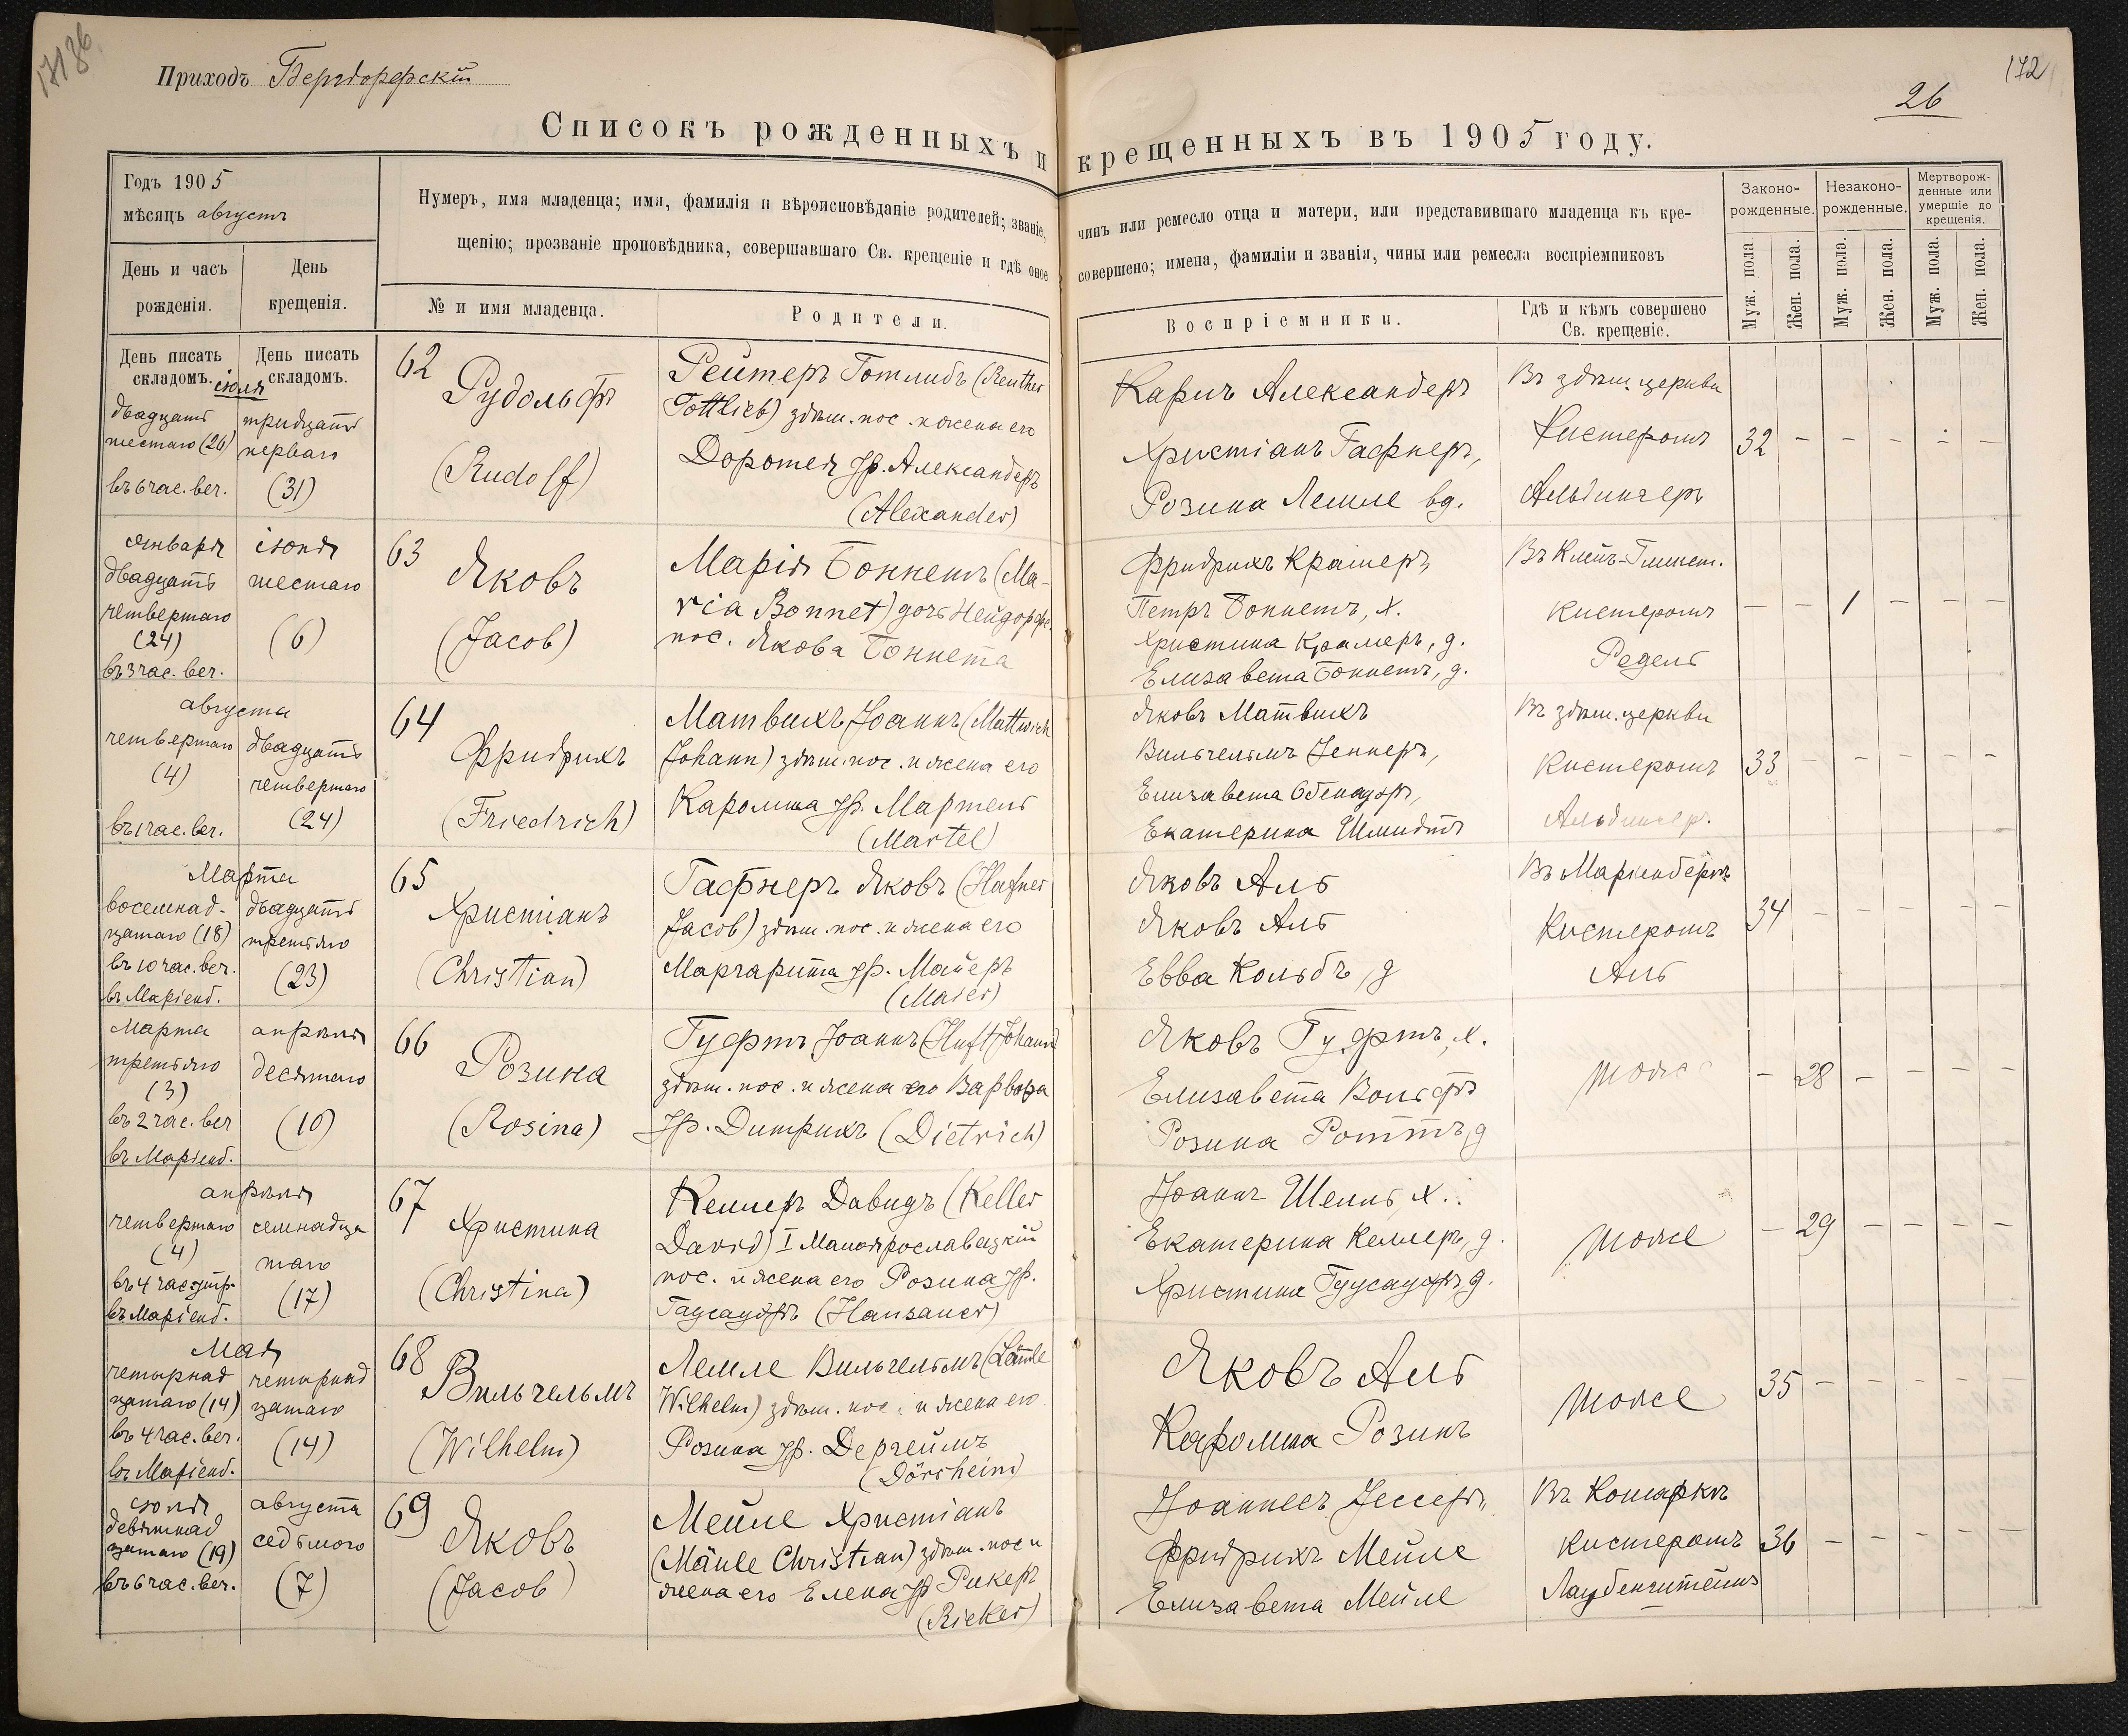 17136
Приходъ Бергдорфскій
172
26
Списокъ рожденныхъ и крещенныхъ въ 1905 году.
Годъ 1905
мѣсяцъ августъ
День и часъ рожденія.
День крещенія.
Нумеръ, имя младенца; имя, фамилія и вѣроисповѣданіе родителей; званіе, чинъ или ремесло отца и матери, или представившаго младенца къ кре-
щенію; прозваніе проповѣдника, совершавшаго Св. крещеніе и гдѣ оное совершено; имена, фамиліи и званія, чины или ремесла воспріемниковъ
№ и имя младенца.
Родители.
Воспріемники.
Гдѣ и кѣмъ совершено Св. крещеніе.
Законо-рожденные.
Незаконо-рожденные.
Мертворож-денные или умершіе до крещенія.
Муж. пола.
Жен. пола.
Муж. пола.
Жен. пола.
Муж. пола.
Жен. пола.
День писать складомъ.
День писать складомъ.
іюля
двадцать
шестаго (26)
въ 6 час. веч.
тридцать
перваго
(31)
62
Рудольфъ
(Rudolf)
Рейтеръ Готлибъ (Reuther
Gottlieb) здѣш. пос. и жена его
Доротея ур. Александеръ
(Alexander)
Карлъ Александеръ
Христіанъ Гафнеръ,
Розина Лемле вд.
Въ здѣш. церкви
Кистеромъ
Альдингеръ
32 – – – – –
января
двадцать
четвертаго
(24)
въ 3 час. веч.
іюня
шестаго
(6)
63
Яковъ
(Jacob)
Марія Боннетъ (Ma-
ria Bonnet) дочь Нейдорф.
пос. Якова Боннета
Фридрихъ Крамеръ,
Петръ Боннетъ, х.
Христина Крамеръ, д.
Елизавета Боннетъ, д.
Въ Клейн-Глюкст.
кистеромъ
Редель
– – 1 – – –
августа
четвертаго
(4)
въ 1 час. веч.
двадцать
четвертаго
(24)
64
Фридрихъ
(Friedrich)
Матвихъ Іоаннъ (Mattwich
Johann) здѣш. пос. и жена его
Каролина ур. Мартель
(Martel)
Яковъ Матвихъ
Вильгельмъ Геннеръ,
Елизавета Обенауэръ,
Екатерина Шмидтъ
Въ здѣш. церкви
Кистеромъ
Альдингеръ.
33 – – – – –
Марта
восемнад-
цатаго (18)
въ 10 час. веч.
въ Маріенб.
двадцать
третьяго
(23)
65
Христіанъ
(Christian)
Гафнеръ Яковъ (Hafner
Jacob) здѣш. пос. и жена его
Маргарита ур. Майеръ
(Maier)
Яковъ Аль
Яковъ Аль
Евва Кольбъ, д
Въ Маріенбергѣ
Кистеромъ
Аль
34 – – – – –
Марта
третьяго
(3)
въ 2 час. веч
въ Маріенб.
апрѣля
десятаго
(10)
66
Розина
(Rosina)
Гуфтъ Іоаннъ (Huft Johann
здѣш. пос. и жена его Варвара
ур. Дитрихъ (Dietrich)
Яковъ Гуфтъ, х.
Елизавета Вольфъ
Розина Роттъ, д
тоже
– 28 – – – –
апрѣля
четвертаго
(4)
въ 4 час. утр.
въ Маріенб.
семнадца
таго
(17)
67
Христина
(Christina)
Келлеръ Давидъ (Keller
David) I Малоярославецкій
пос. и жена его Розина ур.
Гаусауэръ (Hausauer)
Іоаннъ Шелль, х.
Екатерина Келлеръ, д.
Христина Гаусауэръ, д.
тоже
– 29 – – – –
Мая
четырнад
цатаго (14)
въ 4 час. веч.
въ Маріенб.
четырнад
цатаго
(14)
68
Вильгельмъ
(Wilhelm)
Лемле Вильгельмъ (Lämle
Wilhelm) здѣш. пос. и жена его
Розина ур. Дергеймъ
(Dörrheim)
Яковъ Аль
Каролина Розинъ
тоже
35 – – – – –
іюня
девятнад
цатаго (19)
въ 6 час. веч.
августа
седьмого
(7)
69
Яковъ
(Jacob)
Мейле Христіанъ
(Mäule Christian) здѣш. пос и
жена его Елена ур. Рикеръ
(Rieker)
Іоаннесъ Гессеръ,
Фридрихъ Мейле
Елизавета Мейле
Въ Комаркѣ
кистеромъ
Лаубенштейнъ
36 – – – – –